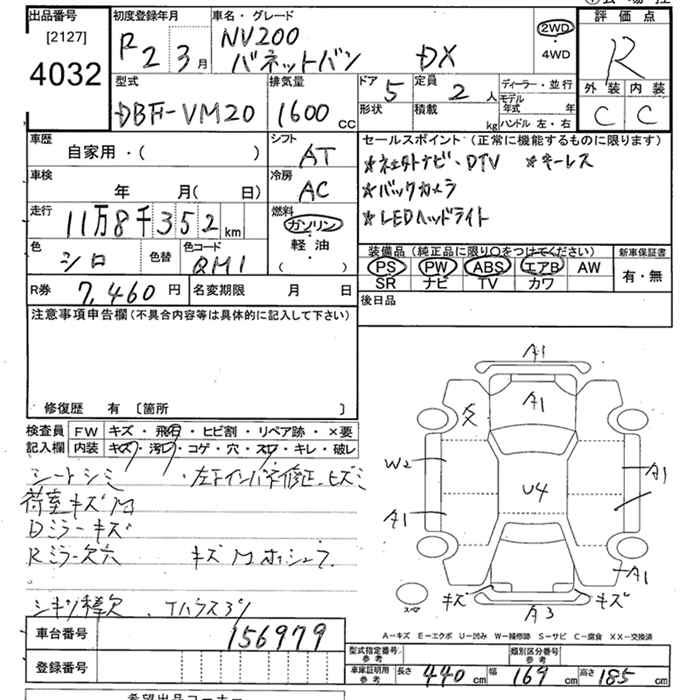 出品番号
[2127]
4032
初度登録年月
R2 3月
車名・グレード
NV200
バネットバン DX
2WD
4WD
評価点
R
外装 内装
C C
型式
DBF-VM20
排気量
1600cc
ドア
5
形状
定員
2人
積載
kg
ディーラー・並行
モデル年式 年
ハンドル 左・右
車歴
自家用・( )
シフト
AT
車検
年 月( 日)
冷房
AC
走行
11万8千352km
燃料
ガソリン
軽油
( )
色
シロ
色替
色コード
QM1
R券
7,460円
名変期限 月 日
セールスポイント(正常に機能するものに限ります)
★社外ナビ・DTV ★キーレス
★バックカメラ
★LEDヘッドライト
装備品(純正品に限り○をつけてください)
PS PW ABS エアB AW
SR ナビ TV カワ
新車保証書
有・無
後日品
注意事項申告欄(不具合内容等は具体的に記入して下さい)
修復歴 有 〔箇所 〕
検査員記入欄
FW キズ・飛石・ヒビ割・リペア跡・×要
内装 キズ・汚レ・コゲ・穴・スレ・キレ・破レ
シートシミ ・左下インパネ修正、ヒズミ
荷室キズM
Dミラーキズ
Rミラー欠穴 キズMホシュウ
シキリ棒欠
車台番号
156979
登録番号
希望出品コーナー
A1
A1
W2
U4
A1
A1
A1
キズ
キズ
A3
スペア
A-キズ E-エクボ U-凹み W-補修跡 S-サビ C-腐食 XX-交換済
型式指定番号 参考
類別区分番号 参考
車庫証明用 参考
長さ 440cm 幅 169cm 高さ 185cm